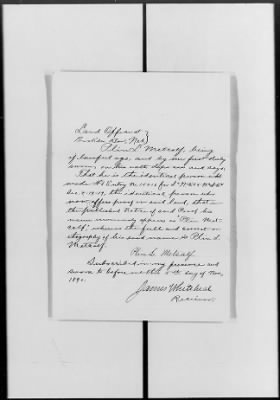 Land Office and }
Broken Bow, Neb }
Plin L. Metcalf, being
of lawful age, and by me first duly
sworn, on his oath says
That he is the identical person who
made Hd Entry No
Sec. the identical person who
now offers proof on said land, that in
the published Notice of said Proof his
name erroneously appears as Plin Met-
calf, whereas the full and correct or-
thography of his said name is Plin L.
Metcalf.
Plin L. Metcalf
Subscribed in my presence and
sworn to before me this 5th day of Nov,
1890.
James Whitehead
Receiver.